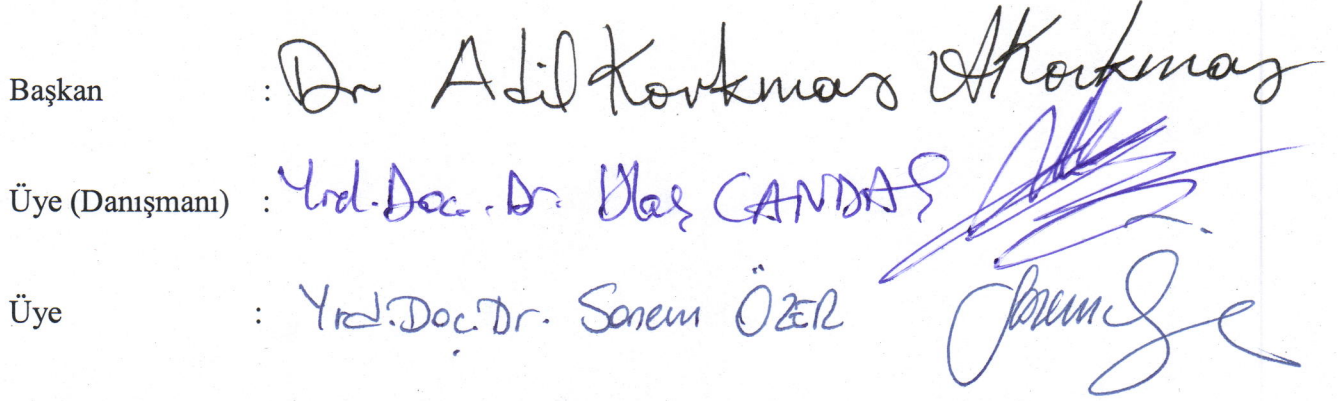 Başkan : Dr Adil Korkmaz AKorkmaz
Üye (Danışmanı) : Yrd.Doc.Dr. Ulaş CANDAŞ
Üye : Yrd.Doç.Dr. Sanem ÖZER